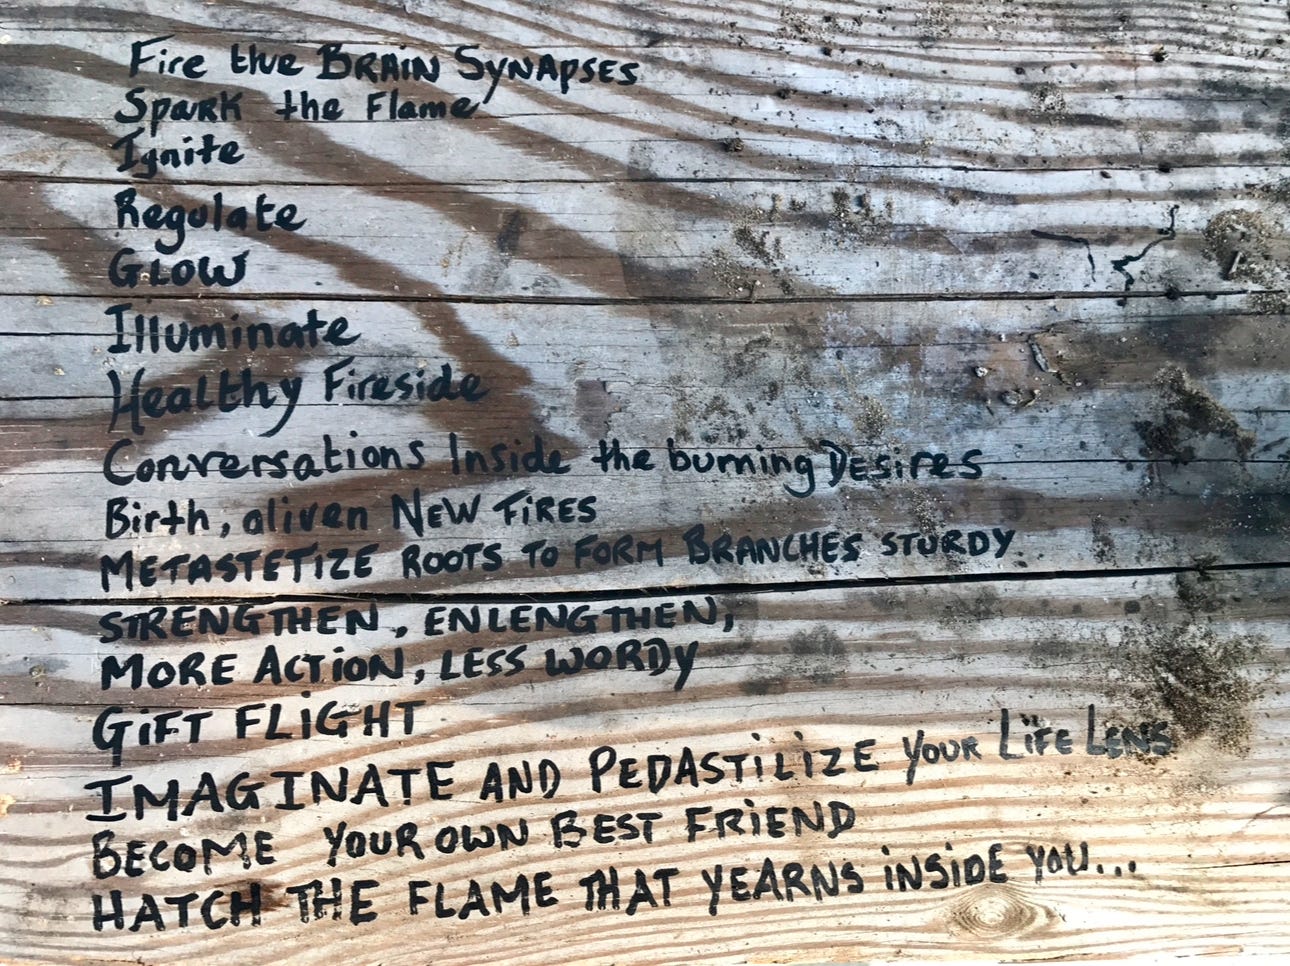 Fire the BRAIN SYNAPSES
Spark the Flame
Ignite
Regulate
GLOW
Illuminate
Healthy Fireside
Conversations Inside the burning DESires
Birth, aliven NEW FiRES
METASTETIZE ROOTS TO FORM BRANCHES STURDY.
STRENGTHEN, ENLENGTHEN,
MORE ACTiON, LESS WORDY
GiFT FLiGHT
IMAGINATE AND PEDASTiLiZE YOUR LiFe LENS
BECOME YOUR OWN BEST FRiEND
HATCH THE FLAME THAT YEARNS iNSiDE YOU...